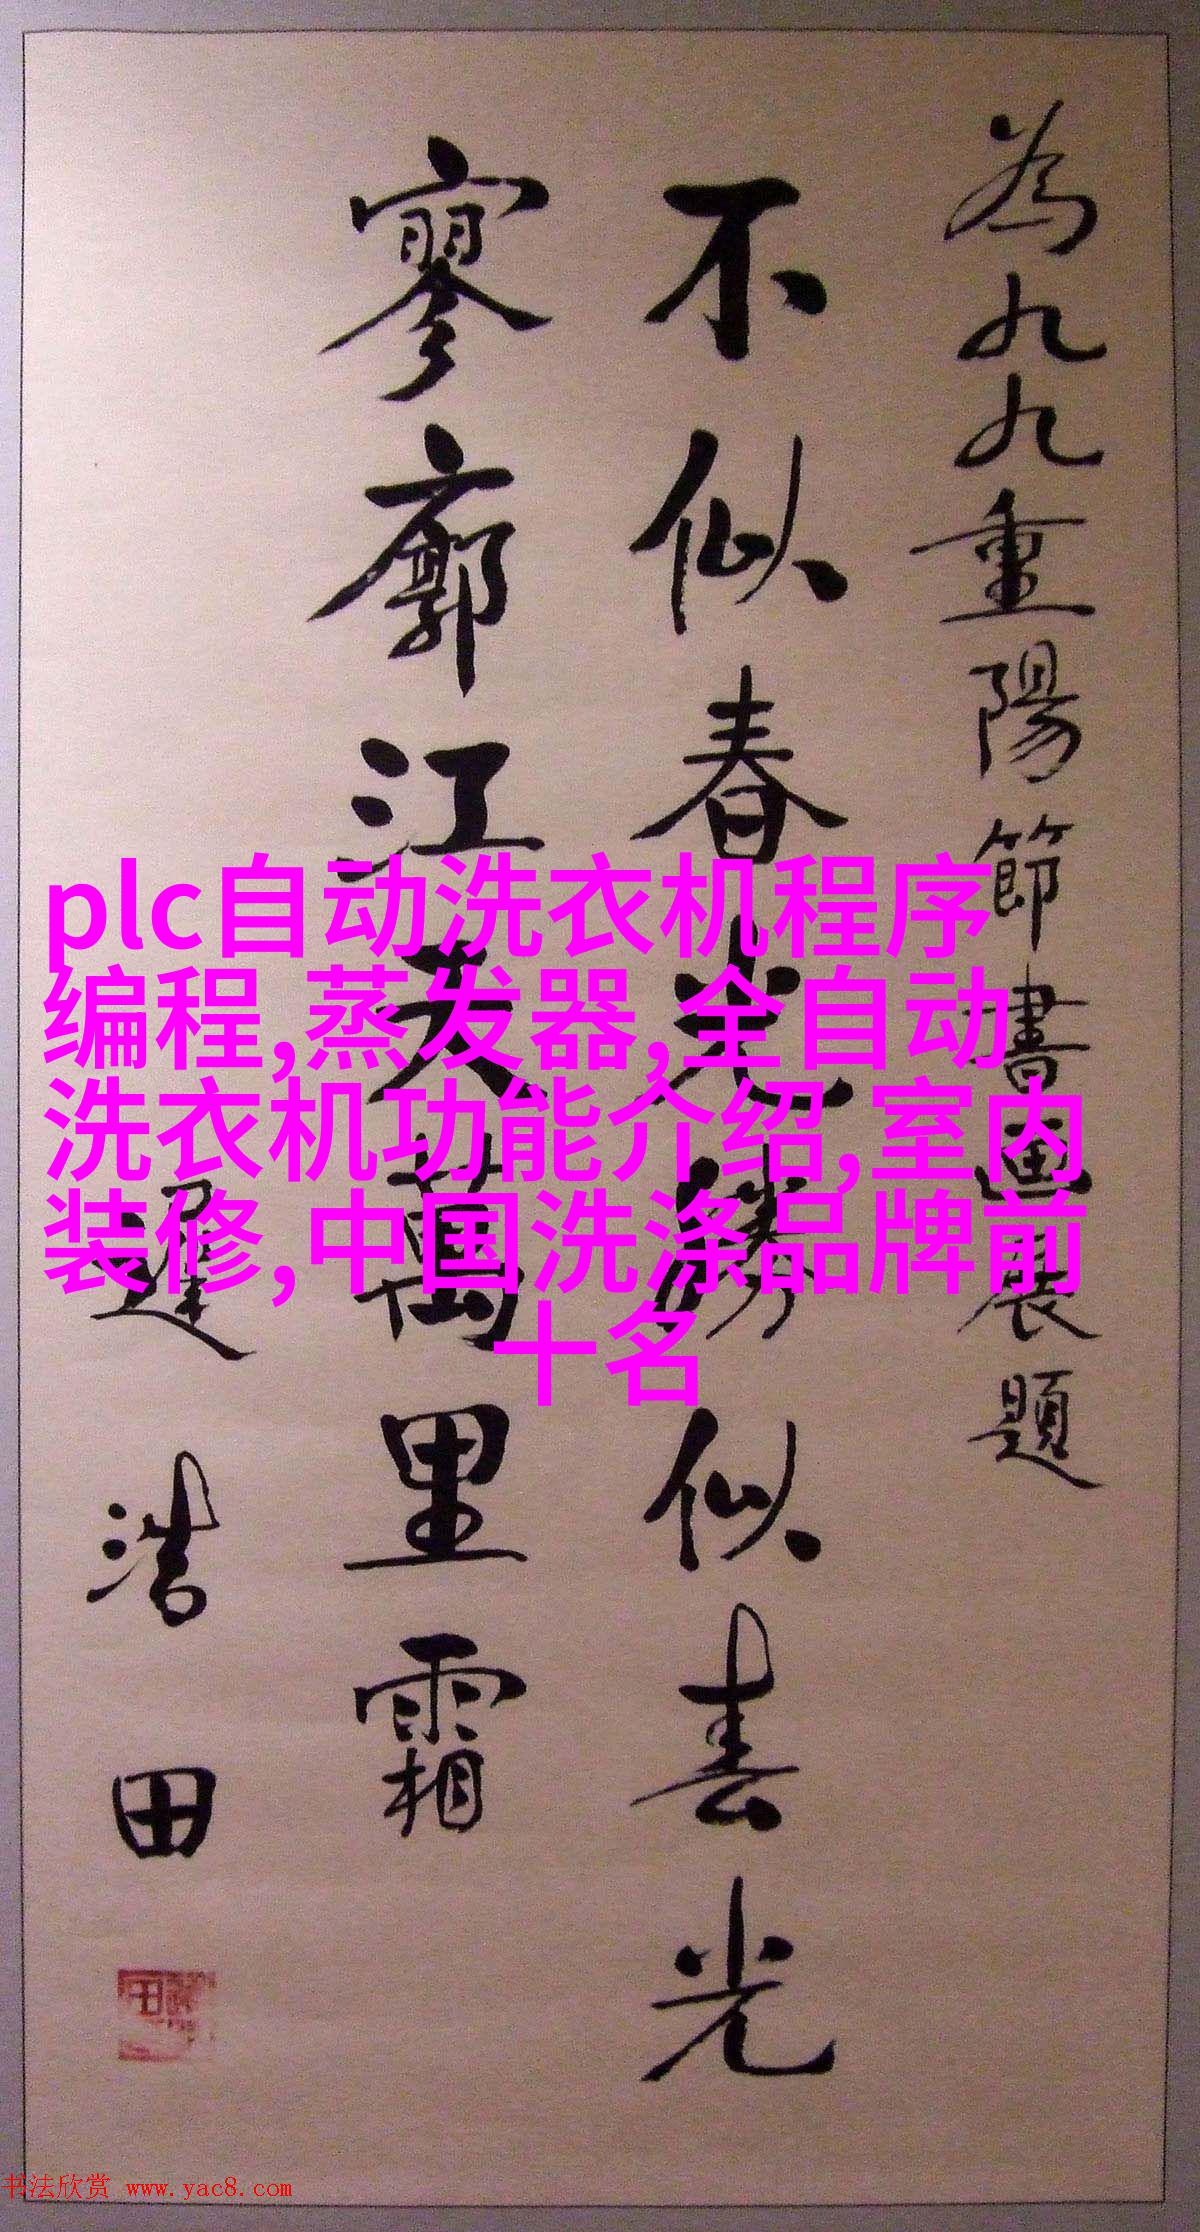 為九九重陽節書畫展題
不似春光勝似春光
寥廓江天萬里霜
遲浩田
plc自动洗衣机程序
编程,蒸发器,全自动
洗衣机功能介绍,室内
装修,中国洗涤品牌前
十名
书法欣赏 www.yac8.com